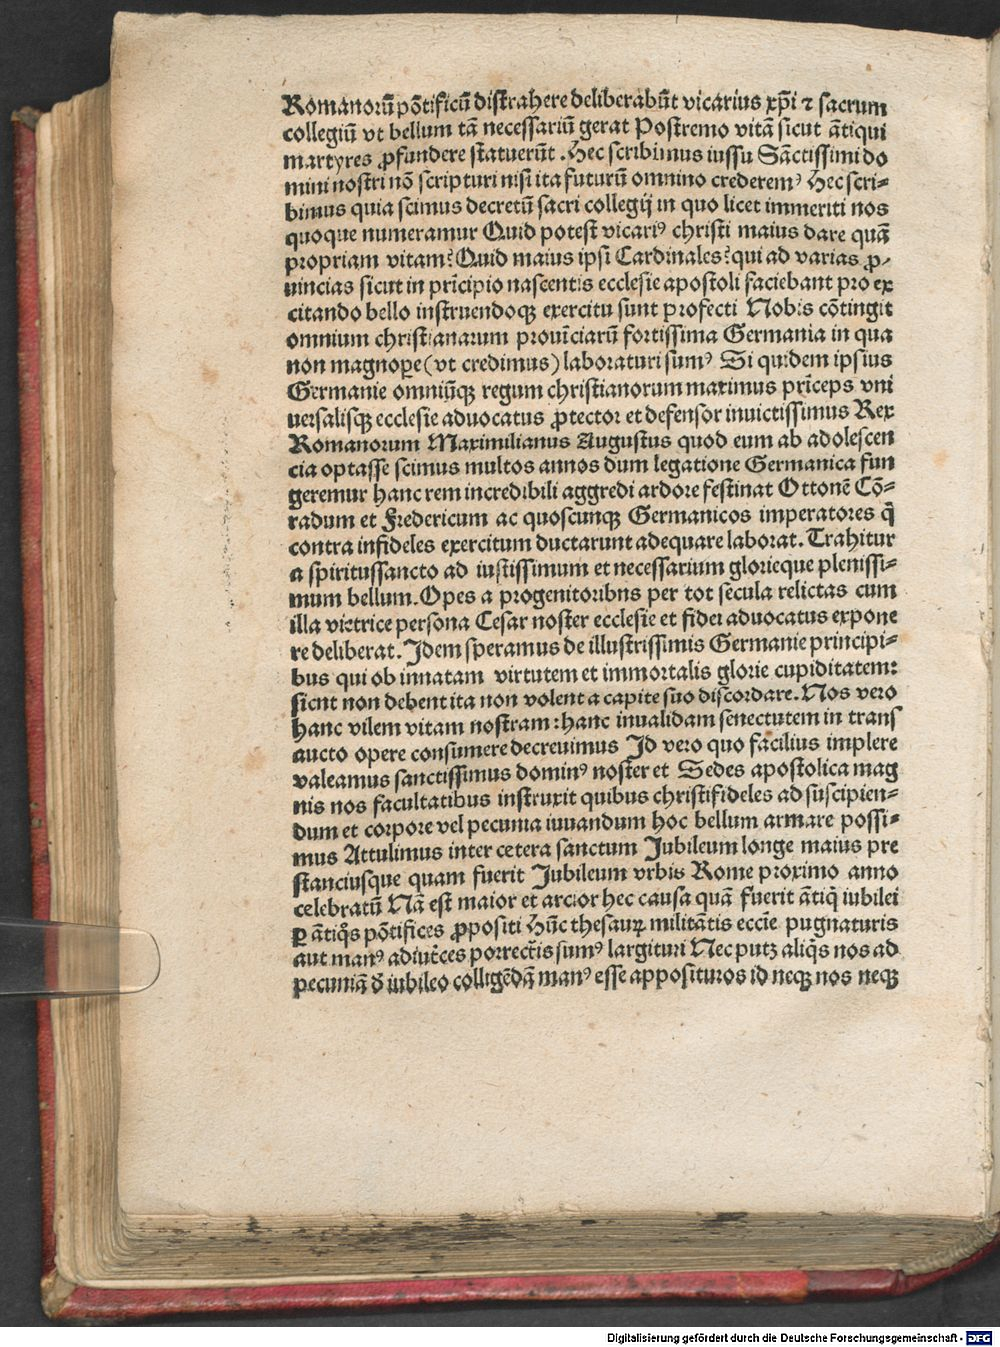 Romanorū pōtificū distrahere deliberabūt vicarius xp̄i ⁊ sacrum
collegiū vt bellum tā necessariū gerat Postremo vitā sicut ātiqui
martyres ꝓfundere statuerūt. Hec scribimus iussu Sāctissimi do
mini nostri nō scripturi nisi ita futurū omnino crederemꝰ Hec scri⸗
bimus quia scimus decretū sacri collegij in quo licet immeriti nos
quoque numeramur Quid potest vicariꝰ christi maius dare quā
propriam vitam? Quid maius ipsi Cardinales? qui ad varias ꝓ⸗
uincias sicut in prīcipio nascentis ecclesie apostoli faciebant pro ex
citando bello instruendoqꝫ exercitu sunt profecti Nobis cōtingit
omnium christianarum prouīciarū fortissima Germania in qua
non magnoꝑe (vt credimus) laboraturi sumꝰ Si quidem ipsius
Germanie omniūqꝫ regum christianorum maximus prīceps vni
uersalisqꝫ ecclesie aduocatus ꝓtector et defensor inuictissimus Rex
Romanorum Maximilianus Augustus quod eum ab adolescen
cia optasse scimus multos annos dum legatione Germanica fun
geremur hanc rem incredibili aggredi ardore festinat Ottonē Cō⸗
radum et Fredericum ac quoscunqꝫ Germanicos imperatores q̄
contra infideles exercitum ductarunt adequare laborat. Trahitur
a spiritussancto ad iustissimum et necessarium glorieque plenissi⸗
mum bellum. Opes a progenitoribns per tot secula relictas cum
illa victrice persona Cesar noster ecclesie et fidei aduocatus expone
re deliberat. Idem speramus de illustrissimis Germanie principi⸗
bus qui ob innatam virtutem et immortalis glorie cupiditatem:
sicnt non debent ita non volent a capite suo discordare. Nos vero
hanc vilem vitam nostram: hanc inualidam senectutem in trans
aucto opere consumere decreuimus Id vero quo facilius implere
valeamus sanctissimus dominꝰ noster et Sedes apostolica mag
nis nos facultatibus instruxit quibus christifideles ad suscipien⸗
dum et corpore vel pecunia iuuandum hoc bellum armare possi⸗
mus Attulimus inter cetera sanctum Jubileum longe maius pre
stanciusque quam fuerit Jubileum vrbis Rome proximo anno
celebratū Nā est maior et arctior hec causa quā fuerit ātiq̄ iubilei
ꝑ ātiq̄s pōtifices ꝓpositi Hūc thesauꝝ militātis eccīe pugnaturis
aut manꝰ adiut̄ces porrect̄is sumꝰ largituri Nec putꝫ aliq̄s nos ad
pecuniā d̄ iubileo colligēdā manꝰ esse apposituros id neqꝫ nos neqꝫ
Digitalisierung gefördert durch die Deutsche Forschungsgemeinschaft - DFG